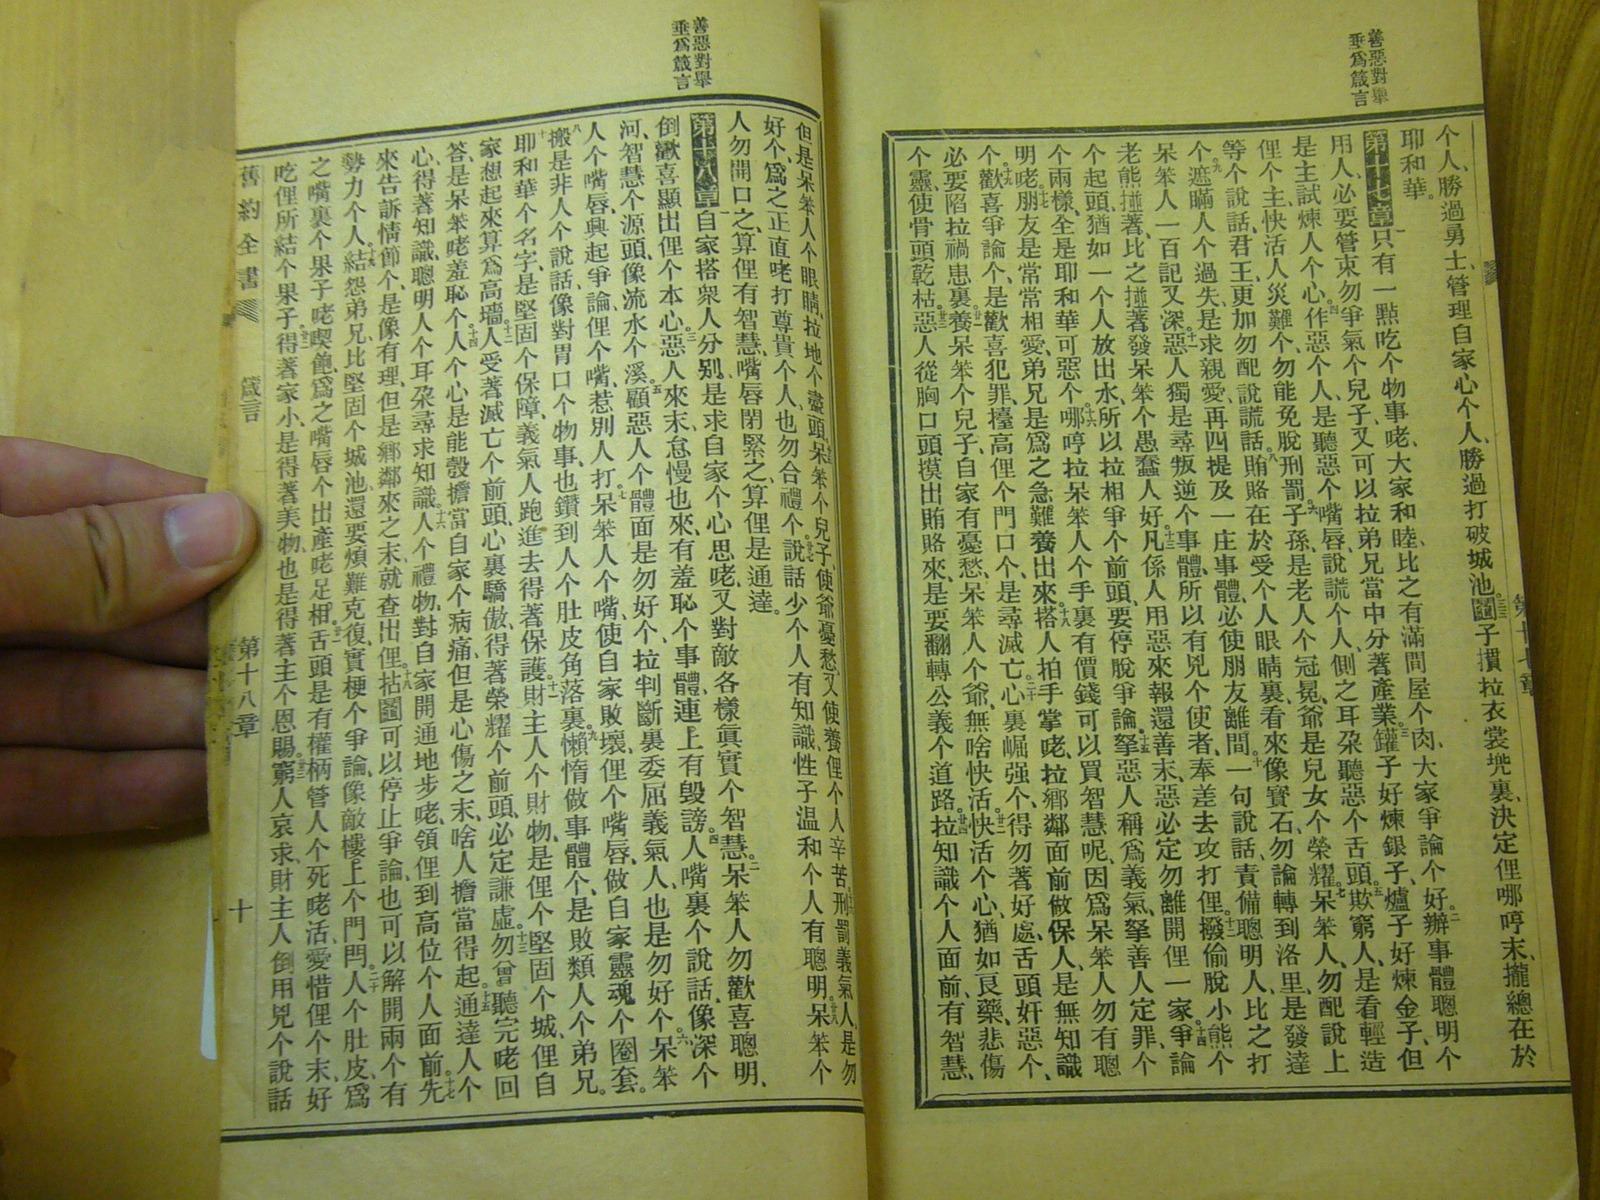 善惡對舉
垂爲箴言
个人、勝過勇士、管理自家心个人、勝過打破城池。鬮子摜拉衣裳兜裏、決定俚哪哼末、攏總在於
耶和華。
第十七章 只有一點吃个物事咾、大家和睦、比之有滿間屋个肉、大家爭論个好。二辦事體聰明个
用人、必要管束勿爭氣个兒子、又可以拉弟兄當中分著產業。三鑵子好煉銀子、爐子好煉金子、但
是主試煉人个心。四作惡个人、是聽惡个嘴唇、說謊个人、側之耳朶聽惡个舌頭。五欺窮人、是看輕造
俚个主、快活人災難个、勿能免脫刑罰。六子孫是老人个冠冕、爺是兒女个榮耀。七呆笨人、勿配說上
等个說話、君王更加勿配說謊話。八賄賂在於受个人眼睛裏、看來像寶石、勿論轉到洛里、是發達
个。九遮瞞人个過失、是求親愛、再四提及一庄事體、必使朋友離間。十一句說話責備聰明人、比之打
呆笨人一百記又深。十一惡人獨是尋叛逆个事體、所以有兇个使者、奉差去攻打俚。十二撥偷脫小熊个
老熊搪著、比之搪著發呆笨个愚蠢人好。十三凡係人用惡來報還善末、惡必定勿離開俚一家。十四爭論
个起頭、猶如一个人放出水、所以拉相爭个前頭、要停脫爭論。十五拏惡人稱爲義氣、拏善人定罪个
个兩樣、全是耶和華可惡个。十六哪哼拉呆笨人个手裏有價錢可以買智慧呢、因爲呆笨人勿有聰
明咾。十七朋友是常常相愛、弟兄是爲之急難養出來。十八搭人拍手掌咾、拉鄉鄰面前做保人、是無知識
个。十九歡喜爭論个、是歡喜犯罪、擡高俚个門口个、是尋滅亡。二十心裏崛强个、得勿著好處、舌頭奸惡个、
必要陷拉禍患裏。廿一養呆笨个兒子、自家有憂愁、呆笨人个爺、無啥快活。廿二快活个心、猶如良藥、悲傷
个靈、使骨頭乾枯。廿三惡人從胸口頭摸出賄賂來、是要翻轉公義个道路。廿四拉知識个人面前有智慧、
第十七章
善惡對舉
垂爲箴言
但是呆笨人个眼睛、拉地个盡頭。廿五呆笨个兒子、使爺憂愁、又使養俚个人辛苦。廿六刑罰義氣人、是勿
好个、爲之正直咾打尊貴个人、也勿合禮个。廿七說話少个人有知識、性子溫和个人有聰明。廿八呆笨个
人勿開口之、算俚有智慧、嘴唇閉緊之、算俚是通達。
第十八章 自家搭衆人分別、是求自家个心思咾、又對敵各樣眞實个智慧。二呆笨人勿歡喜聰明、
倒歡喜顯出俚个本心。三惡人來末、怠慢也來、有羞恥个事體、連上有毁謗。四人嘴裏个說話、像深个
河、智慧个源頭、像流水个溪。五顧惡人个體面、是勿好个、拉判斷裏委屈義氣人、也是勿好个。六呆笨
人个嘴唇、興起爭論、俚个嘴、惹別人打。七呆笨人个嘴、使自家敗壞、俚个嘴唇、做自家靈魂个圈套。
八搬是非人个說話、像對胃口个物事、也鑽到人个肚皮角落裏。九懶惰做事體个、是敗類人个弟兄。
十耶和華个名字、是堅固个保障、義氣人跑進去得著保護。十一財主人个財物、是俚个堅固个城、俚自
家想起來算爲高墻。十二人受著滅亡个前頭、心裏驕傲、得著榮耀个前頭、必定謙虛。十三勿曾聽完咾回
答、是呆笨咾羞恥个。十四人个心、是能彀擔當自家个病痛、但是心傷之末、啥人擔當得起。十五通達人个
心、得著知識、聰明人个耳朶、尋求知識。十六人个禮物、對自家開通地步咾、領俚到高位个人面前。十七先
來告訴情節个、是像有理、但是鄉鄰來之末、就查出俚。十八拈鬮可以停止爭論、也可以解開兩个有
勢力个人。十九結怨弟兄、比堅固个城池還要煩難克復、實梗个爭論、像敵樓上个門閂。二十人个肚皮、爲
之嘴裏个果子咾喫飽、爲之嘴唇个出產咾足相。廿一舌頭是有權柄管人个死咾活、愛惜俚个末、好
吃俚所結个果子。廿二得著家小、是得著美物、也是得著主个恩賜。廿三窮人哀求、財主人倒用兇个說話
舊約全書 箴言 第十八章 十